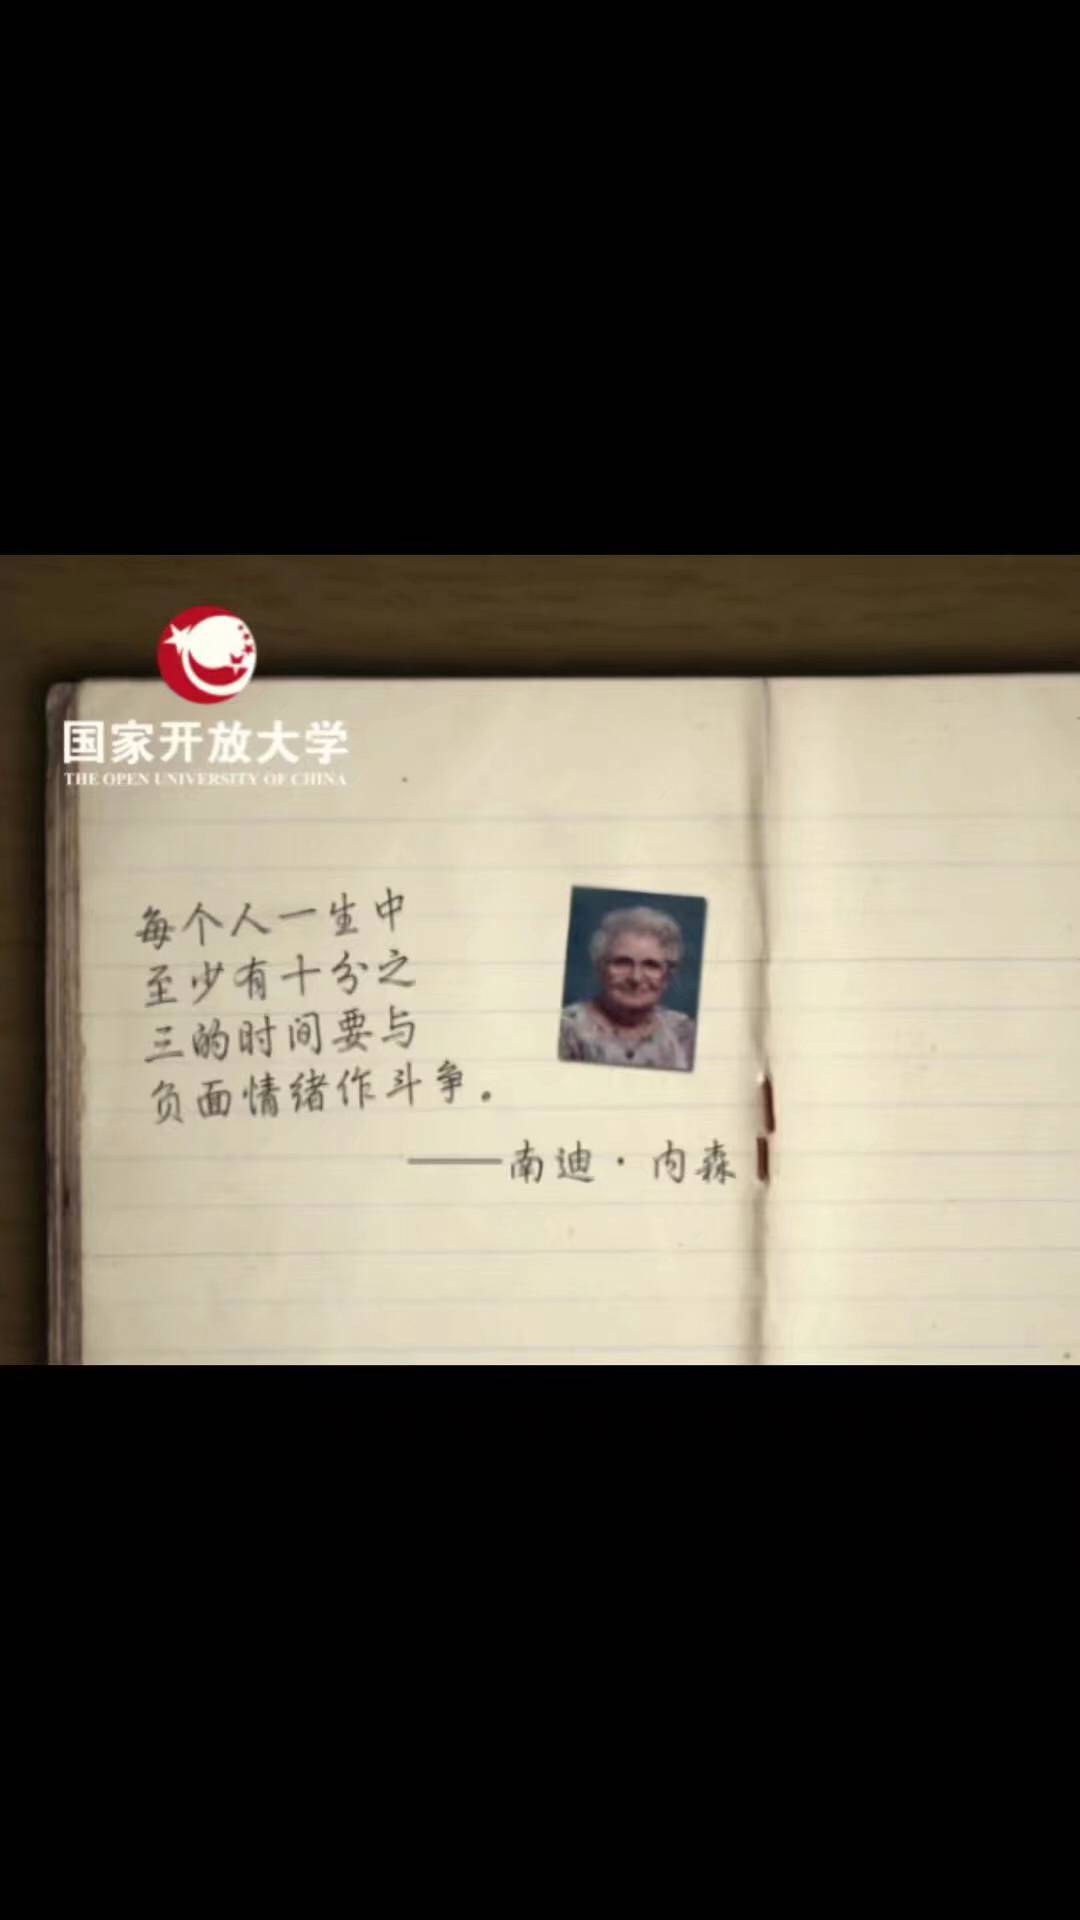 国家开放大学
THE OPEN UNIVERSITY OF CHINA
每个人一生中
至少有十分之
三的时间要与
负面情绪作斗争。
——南迪·内森